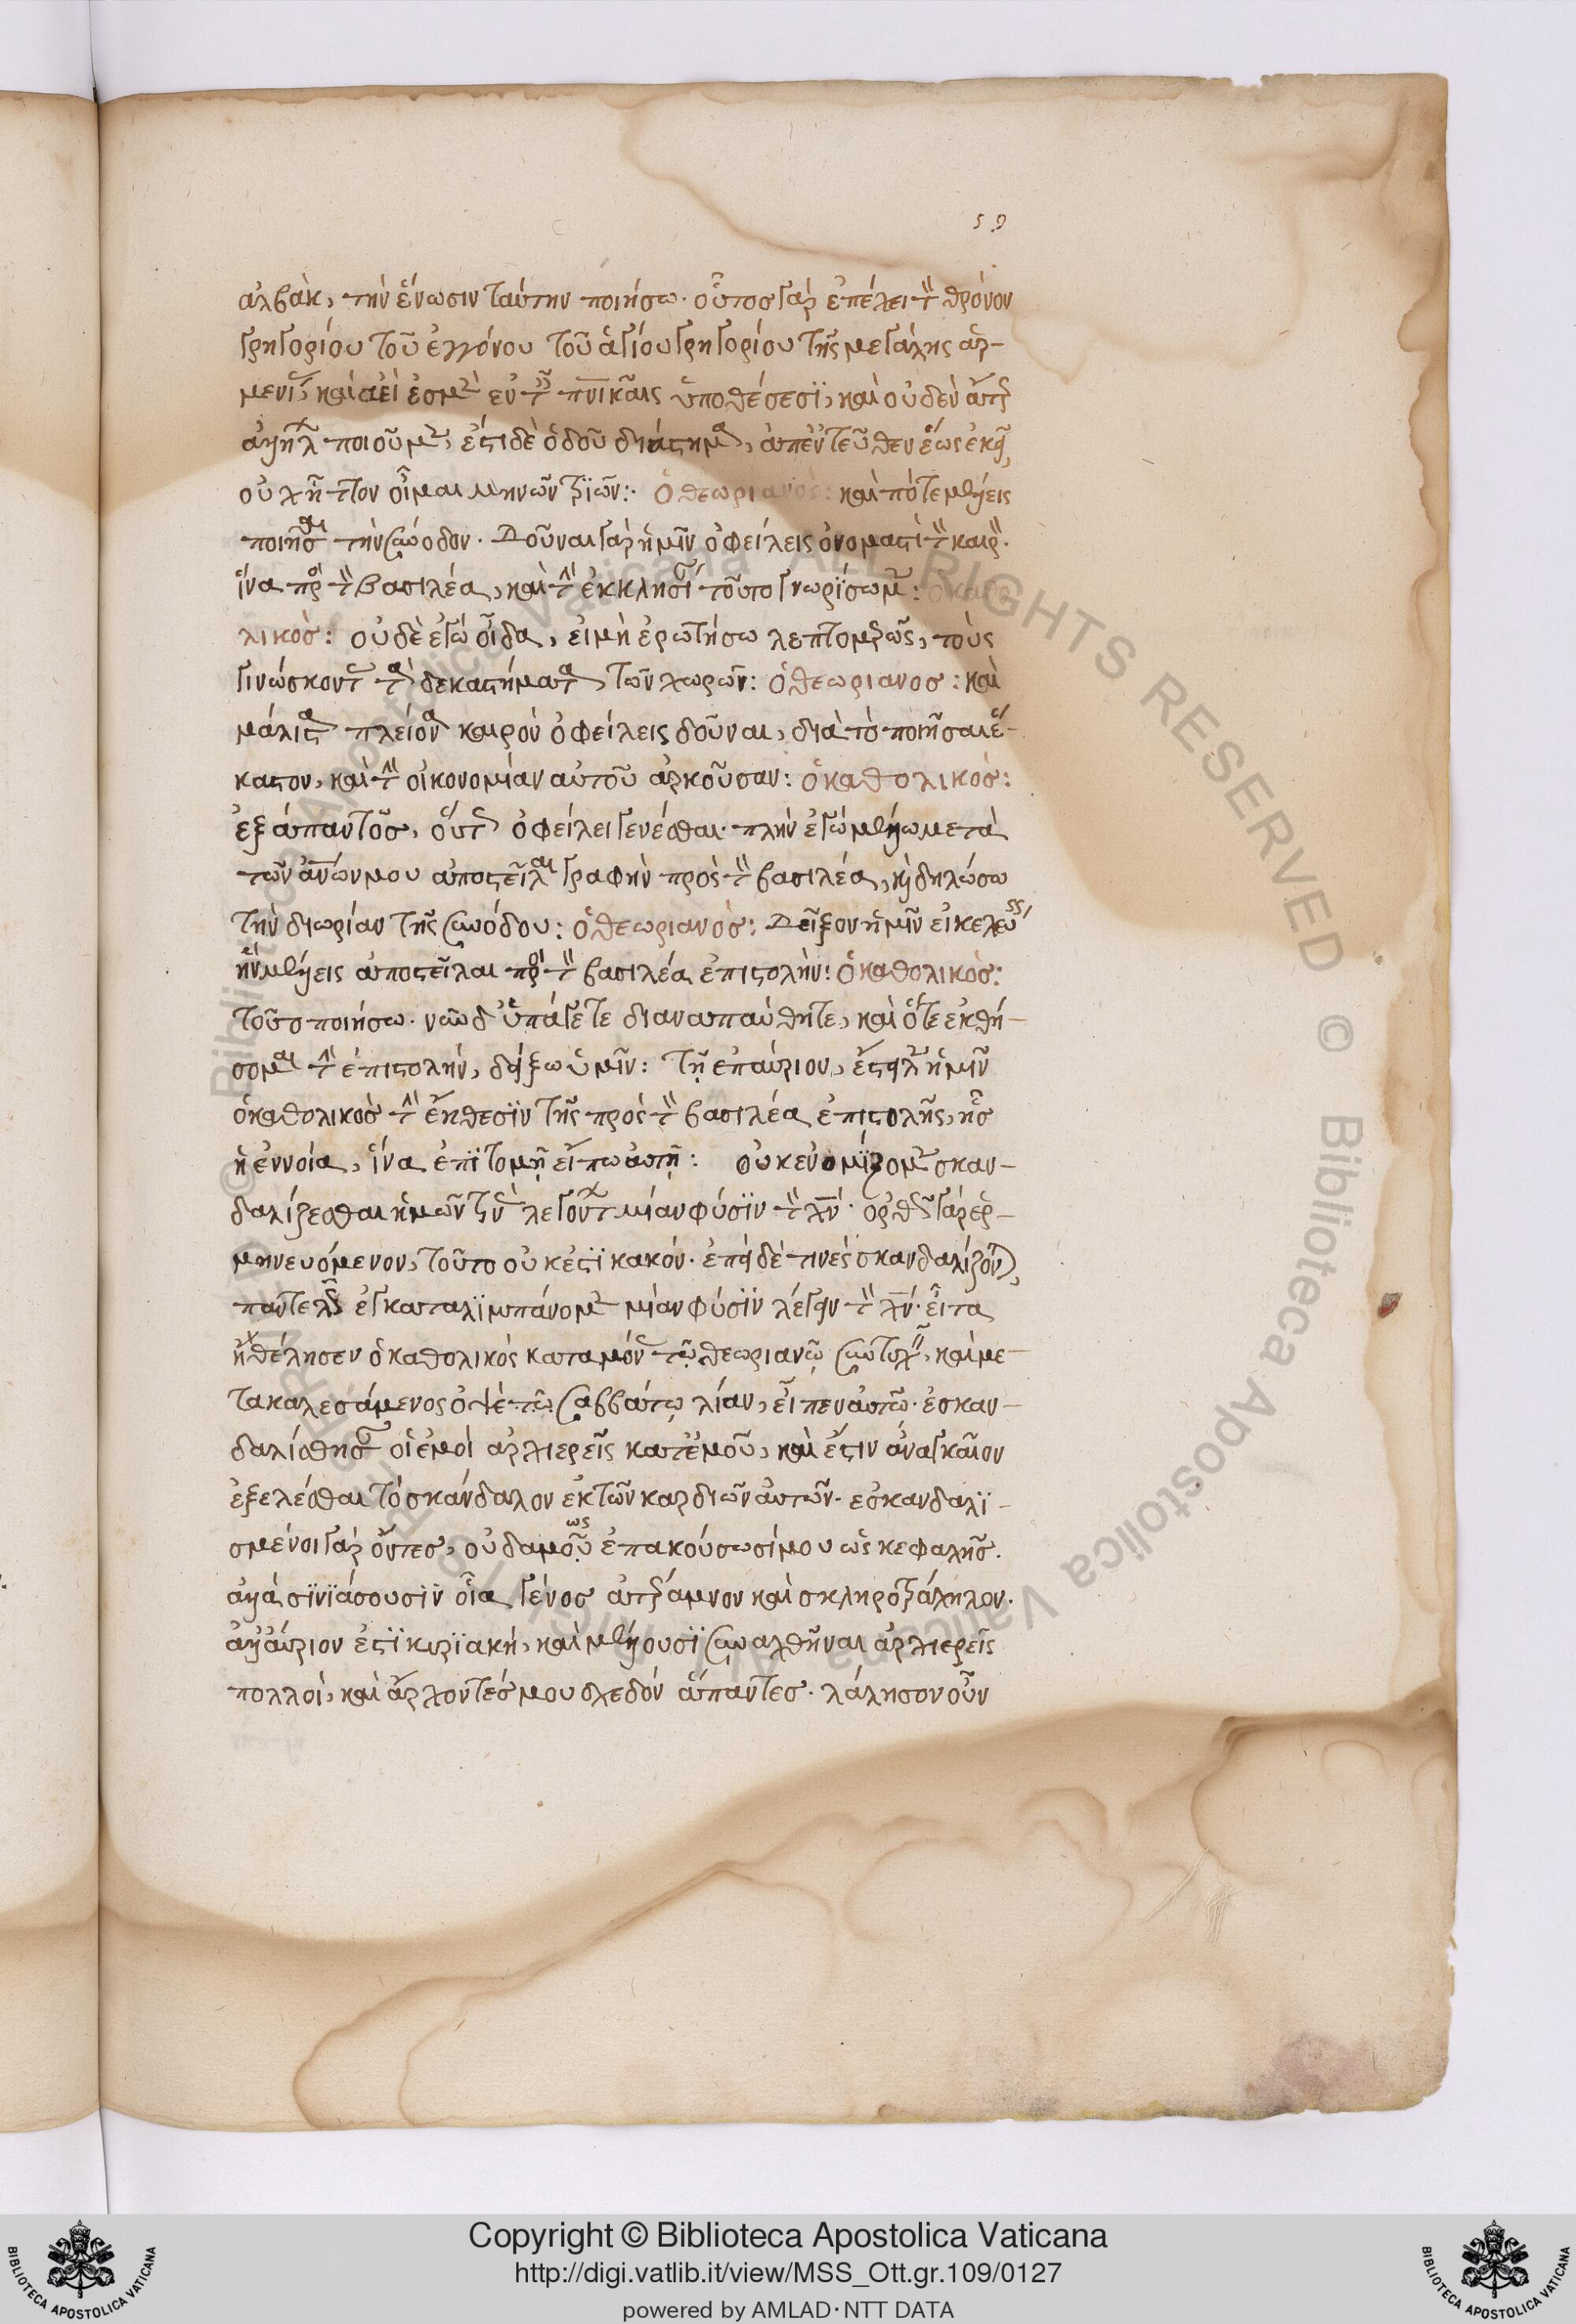 59
ἀλβὰκ, τὴν ἕνωσιν ταύτην ποιήσω· οὗτος γὰρ ἐπέχει τὸν θρόνον
γρηγορίου τοῦ ἐγγόνου τοῦ ἁγίου γρηγορίου τῆς μεγάλης ἀρ-
μενίας καὶ ἀεὶ ἐσμὲν ἐν τοῖς πνικαῖς ὑποθέσεσϊ, καὶ οὐδὲν
ποιοῦμεν, ἔστι δὲ ὁδοῦ διάστημα, ἀπεντεῦθεν ἕως ἐκεῖ,
οὐχ ἧττον οἶμαι μηνῶν τριῶν: ὁ θεωριανὸς: καὶ πότε μέλλεις
ποιῆσαι τὴν σύνοδον· δοῦναι γὰρ ἡμῖν ὀφείλεις ὀνομαστὶ τὸν καιρὸν·
ἵνα πρὸς τὸν βασιλέα, καὶ τὴν ἐκκλησίαν τοῦτο γνωρίσωμεν: ὁ καθο
λικὸς: οὐδὲ ἐγὼ οἶδα, εἰ μὴ ἐρωτήσω λεπτομερῶς, τοὺς
γινώσκοντας τὰ δὲ καστήματα τῶν χωρῶν: ὁ θεωριανος: καὶ
μάλιστα πλείονα καιρὸν ὀφείλεις δοῦναι, διὰ τὸ ποιῆσαι ἕ-
καστον, καὶ τὴν οἰκονομίαν αὐτοῦ ἀρκοῦσαν: ὁ καθολικὸς:
ἐξάπαντος, οὕτως ὀφείλει γενέσθαι· πλὴν ἐγὼ μέλλω μετὰ
τῶν ἀνων μου ἀποστεῖλαι γραφὴν πρὸς τὸν βασιλέα, κἠ δηλώσω
τὴν διωρίαν τῆς συνόδου: ὁ θεωριανὸς: δεῖξον ἡμῖν εἰ κελεύεις
ἣν μέλλεις ἀποστεῖλαι πρὸς τὸν βασιλέα ἐπιστολὴν: ὁ καθολικὸς:
τοῦτο ποιήσω· νῦν δ ὑπάγετε διαναπαύθητε, καὶ ὅτε ἐκθή-
σομαι τὴν ἐπιστολὴν, δείξω ὑμῖν: τῇ ἐπαύριον, ἔστειλεν ἡμῖν
ὁ καθολικὸς τὴν ἔκθεσϊν τῆς πρὸς τὸν βασιλέα ἐπιστολῆς, ἧς
ἡ ἔννοια, ἵνα ἐπϊτομῇ εἴπω αὕτη: οὐκ ἐνομίζομεν σκαν-
δαλίζεσθαι ἡμῶν τινὰ λεγόντων μίαν φύσϊν τὸν χν· ὀρθῶς γὰρ ἑρ-
μηνευόμενον, τοῦτο οὐκ ἔστϊ κακόν· ἐπεὶ δέ τινὲς σκανδαλίζονται,
παντελῶς ἐγκαταλϊμπάνομεν μίαν φύσϊν λέγειν τὸν χν· εἶτα
ἠθέλησεν ὁ καθολικὸς καταμόνας τῷ θεωριανῷ συντυχεῖν, καὶ με-
τακαλεσάμενος ὀψὲ τῷ σαββάτῳ λίαν, εἶπεν αὐτῷ· ἐσκαν-
δαλίσθησαν οἱ ἐμοὶ ἀρχιερεῖς κατ ἐμοῦ, καὶ ἔστιν ἀναγκαῖον
ἐξελέσθαι τὸ σκάνδαλον ἐκ τῶν καρδιῶν αὐτῶν· ἐσκανδαλϊ-
σμένοι γὰρ ὄντες, οὐδαμῶς ἐπακούσωσί μου ὡς κεφαλῆς·
ἀλλὰ σϊνϊάσουσϊν οἷα γένος ἀτεράμνον καὶ σκληροτράχηλον·
ἀλλ αὔριον ἐστϊ κυρϊακὴ, καὶ μέλλουσϊ συναχθῆναι ἀρχιερεῖς
πολλοὶ, καὶ ἄρχοντές μου σχεδόν ἅπαντες· λάλησον οὖν
Copyright © Biblioteca Apostolica Vaticana
http://digi.vatlib.it/view/MSS_Ott.gr.109/0127
powered by AMLAD·NTT DATA